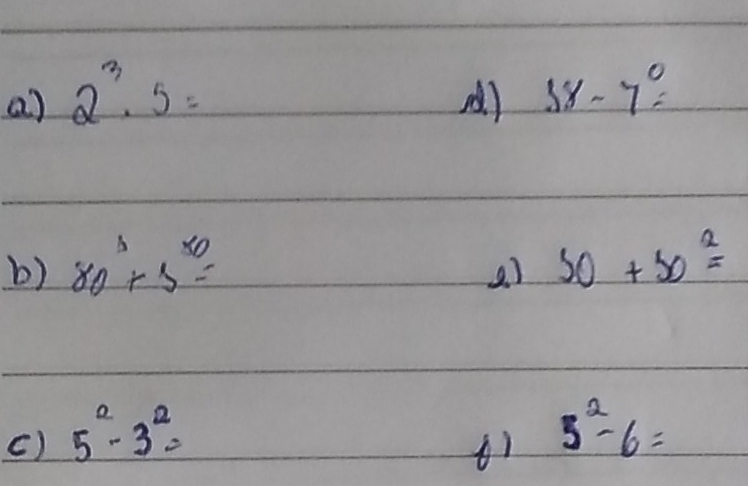 a) 2³ . 5 =
d) 38 - 7⁰ =
b)
e) 50 + 50² =
c) 5² - 3² =
f) 5² - 6 =